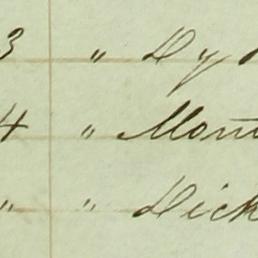 3 " Dy
4 " Mon
" " Dick